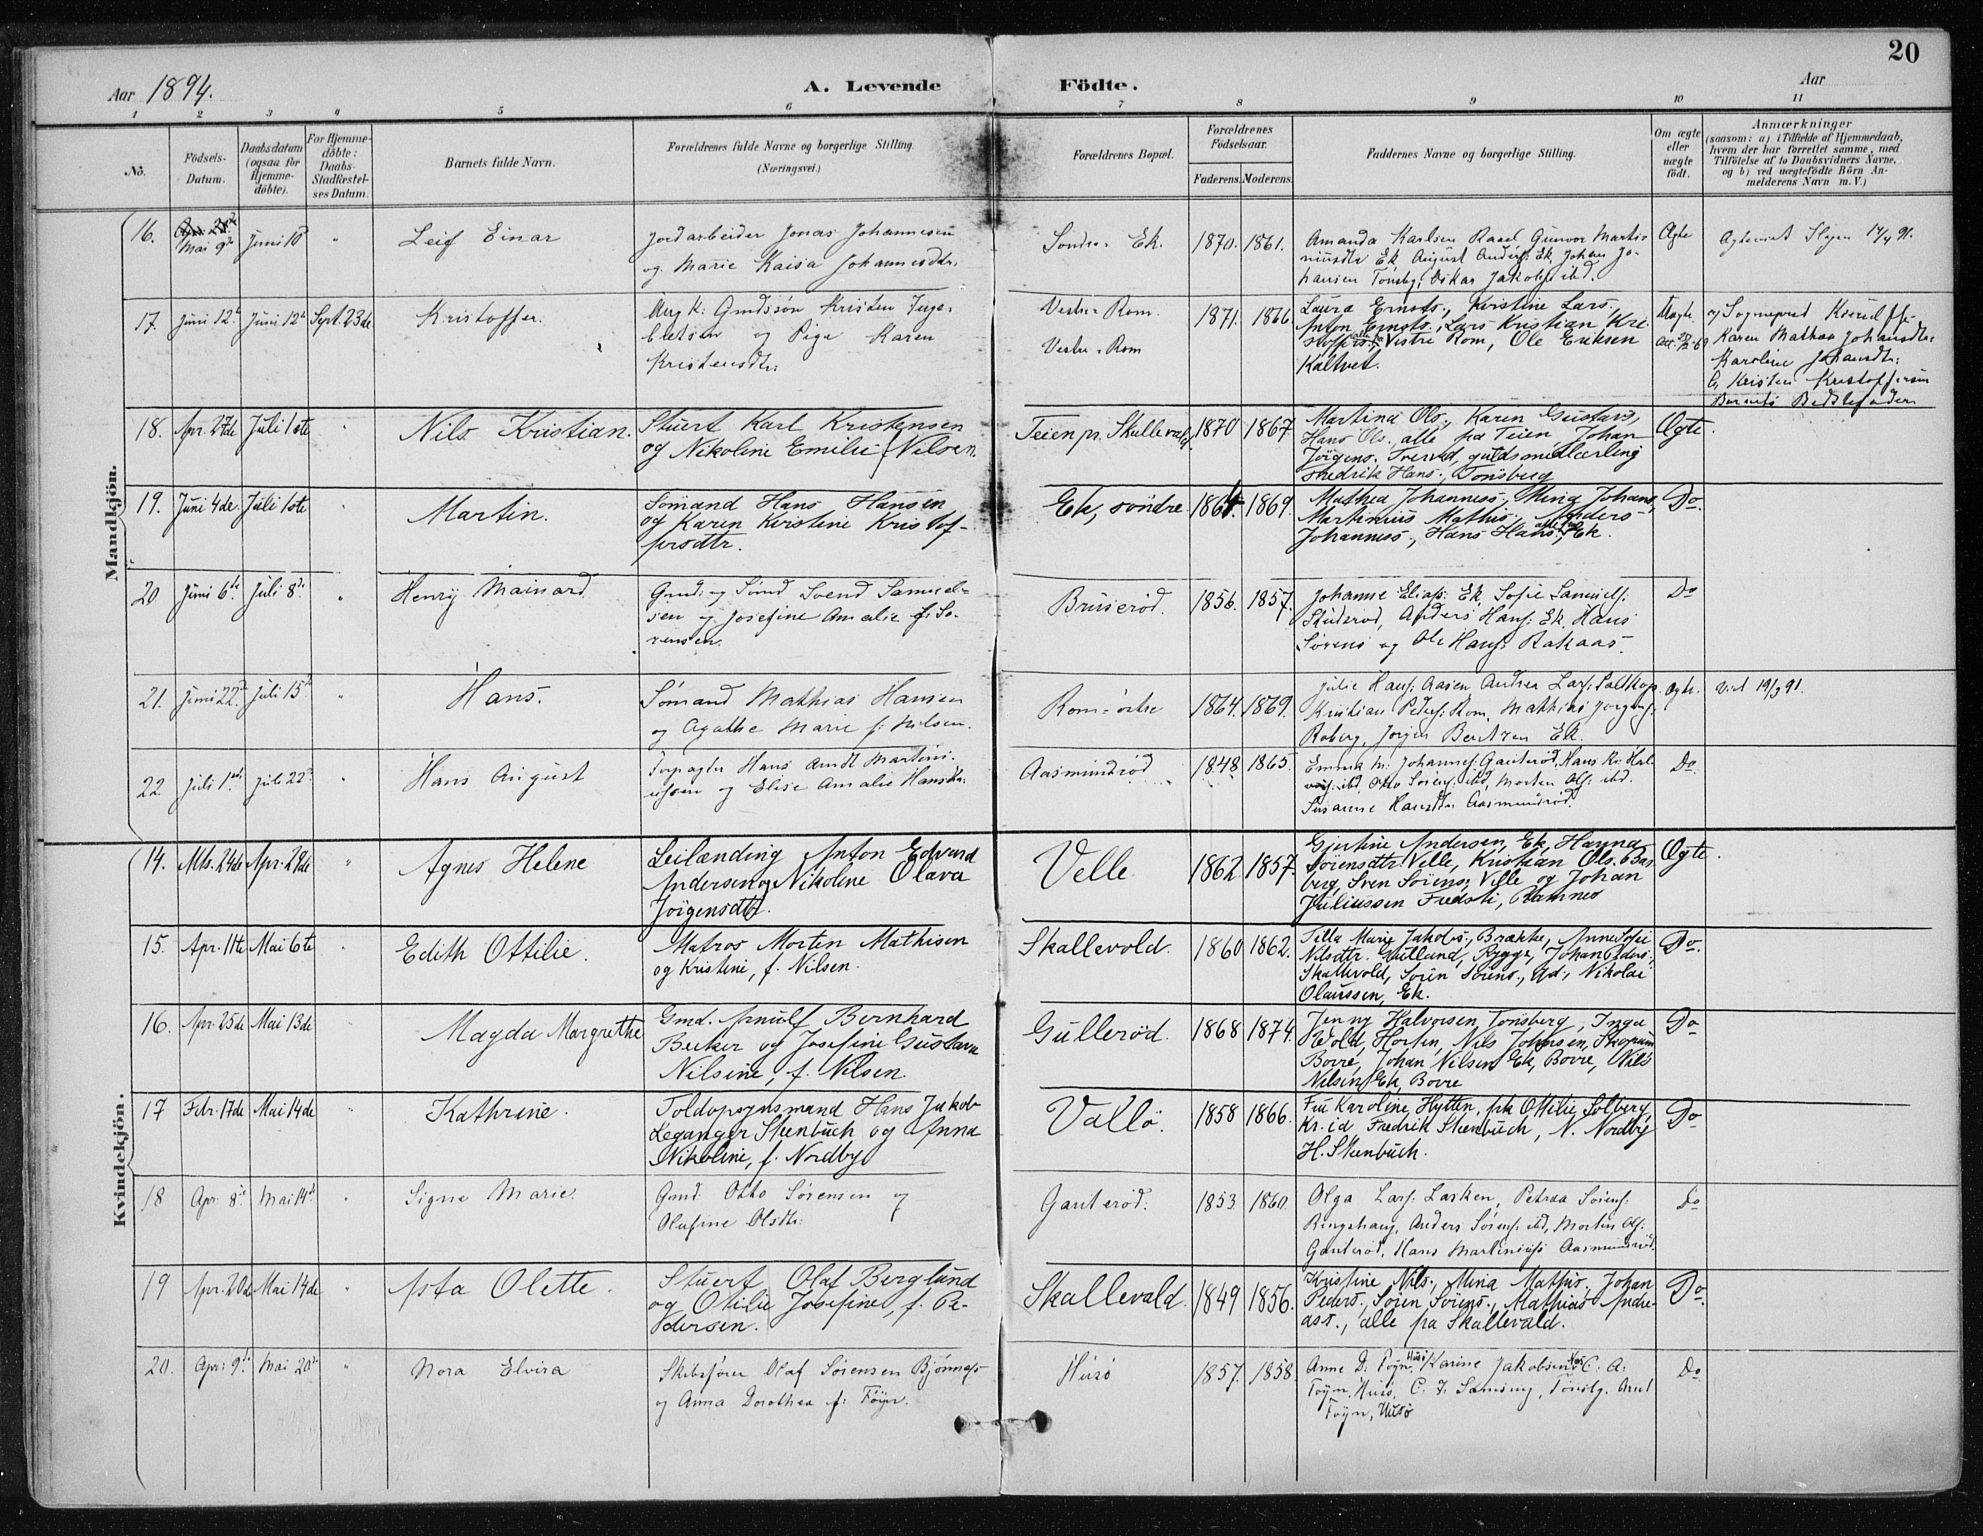 20
Aar 1894.
A. Levende Födte.
Aar
1 2 3 4 5 6 7 8 9 10 11
No.
Födsels-
Datum.
Daabsdatum
(ogsaa for
Hjemme-
döbte).
For Hjemme-
döbte:
Daabs
Stadfæstel-
ses Datum.
Barnets fulde Navn.
Forældrenes fulde Navne og borgerlige Stilling.
(Næringsvei.)
Forældrenes Bopæl.
Forældrenes
Födselsaar.
Faderens. Moderens.
Faddernes Navne og borgerlige Stilling.
Om ægte
eller
uægte
födt.
Anmærkninger
(saasom: a) i Tilfælde af Hjemmedaab,
hvem der har forrettet samme, med
Tilföielse af to Daabsvidners Navne,
og b) ved uægtefödte Börn An-
melderens Navn m. V.)
Mandkjön.
16. Mai 9de Juni 10de " Leif Einar
Jordarbeider Jonas Johannesen
og Marie Kaisa Johannesdtr.
Søndre Ek. 1870. 1861.
Amanda Karlsen Raael Gunvor Marti-
niusdtr Ek August Anders: Ek Johan Jo-
hansen Tønsbg, Oskar Jakobs: ibd.
Ægte
17. Juni 12te Juni 12te Sept. 23de Kristoffer.
Ung k. Gmdssøn Kristen Inge-
bretsen og Pige Karen
Kristensdtr.
Vestre Rom.
Vestre Rom
1871. 1866.
Laura Ernsts., Kirstine Lars.,
Anton Ernsts., Lars Kristian Kri-
stoffers., alle fra Vestre Rom, Ole Eriksen
Kaltvet.
Uægte
Karen Mathea Johansdtr.
Karoline Johansdtr.
Kristen Kristoffersen
Barnets Bedstefader
18. Apr. 27de Juli 1ste " Nils Kristian.
Stuert Karl Kristensen
og Nikoline Emilie f. Nilsen.
Teien pr. Skallevald 1870 1867
Martina Ols., Karen Gustavs,
Hans Ols. alle fra Teien Johan
Jörgens. guldsmedlærling
Fredrik Hans., Tønsberg
Ægte.
19. Juni 4de Juli 1ste " Martin.
Sømand Hans Hansen
og Karen Kirstine Kristof-
fersdtr.
Ek, søndre. 1869.
Mathea Johanness., Mina Johans.,
Martinius Mathis., Anders
Johanness., Hans Hans., alle fra Ek.
Do.
20 Juni 6te Juli 8de " Henry Mainard
Gmd. og Sømd Svend Samuel-
sen og Josefine Amalie f. Sø-
rensen.
Bruserød. 1856. 1857.
Johanne Elias: Ek, Sofie Samuels:
Anders Hans: Ek, Hans
Sørens og Ole Hans: Rakaas.
Do
21. Juni 22de Juli 15de " Hans.
Sømand Mathias Hansen
og Agathe Marie f. Nilsen.
Rom østre 1864. 1869.
Julie Hans: Aasen Andrea Lars:
Kristian Peders: Rom, Mathias Jørgens:
Roberg, Jørgen Berntsen Ek.
Ægte.
22. Juli 1ste Juli 22de " Hans August
Forpagter Hans Arndt Martini-
ussen og Elise Amalie Hansdtr.
Aasmundrød 1848. 1865.
Emma M. Johannes: Gauterød, Hans Kr. Hal-
vors: ibd, Otto Sørens: ibd, Morten Ols: ibd.
Susanne Hansdtr. Aasmundrød.
Do.
Kvindekjön.
14. Mts. 24de Apr. 29de " Agnes Helene
Leilænding Anton Edvard
Andersen og Nikoline Olava
Jörgensdtr.
Velle 1862. 1857.
Gjertine Andersen, Ek, Hanna
Sörensdtr. Velle, Kristian Ols. Bas-
berg, Sven Sörens., Velle og Johan
Juliussen Fredsti, Ramnes
Ægte.
15. Apr. 11te Mai 6te " Edith Ottilie.
Matros Morten Mathisen
og Kristine, f. Nilsen.
Skallevold. 1860 1862.
Tilla Marie Jakobs., Brække, Anne Sofie
Nilsdtr. Gulland, Johan Peders.,
Skallevold, Sören Sörens., Nikolai
Olaussen, Ek.
Do.
16. Apr. 25de Mai 13de " Magda Margrethe
Gmd. Arnulf Bernhard
Becker og Josefine Gustava
Nilsine, f. Nilsen.
Gullerød. 1868 1874.
Jenny Halvorsen, Tønsberg, Inga
Wold, Horten, Nils Johnsen, Skopum
Borre, Johan Nilsen Ek, Borre, Nils
Nilsen, Ek, Borre
Do
17 Febr. 17de Mai 14de " Kathrine.
Toldopsynsmand Hans Jakob
Leganger Steenbuch og Anna
Nikoline, f. Nordby
Vallø. 1858 1866.
Fru Karoline Hytten, frk Ottilie Solberg,
Kr.ia Fredrik Steenbuch, N. Nordby
H. Steenbuch.
Do
18 Apr. 8de Mai 14de " Signe Marie.
Gmd. Otto Sørensen og
Olufine Olsdtr.
Gauterød. 1853 1860.
Olga Lars: Lasken, Petraa Sørens:
Ringshaug, Anders Sørens: ibd, Morten Ols:
Gauterød, Hans Martinius: Aasmundrød.
Do
19 Apr. 20de Mai 14de " Asta Olette.
Stuert Olaf Berglund
og Otilie Josefine, f. Pe-
dersen.
Skallevald. 1849 1856.
Kristine Nils., Mina Mathis., Johan
Peders., Sören Sörens., Mathias Andre-
ass., alle fra Skallevald.
Do.
20. Apr. 9de Mai 20de " Nora Elvira
Skibsfører Olaf Sørensen Bjønnes
og Anna Dorothea f: Føyn.
Husø 1857. 1858.
Anne D. Føyn Husø Karine Jakobsen C. A.
Føyn, Husø. C. F. Tønsbg. Aml
Føyn, Husø
Do